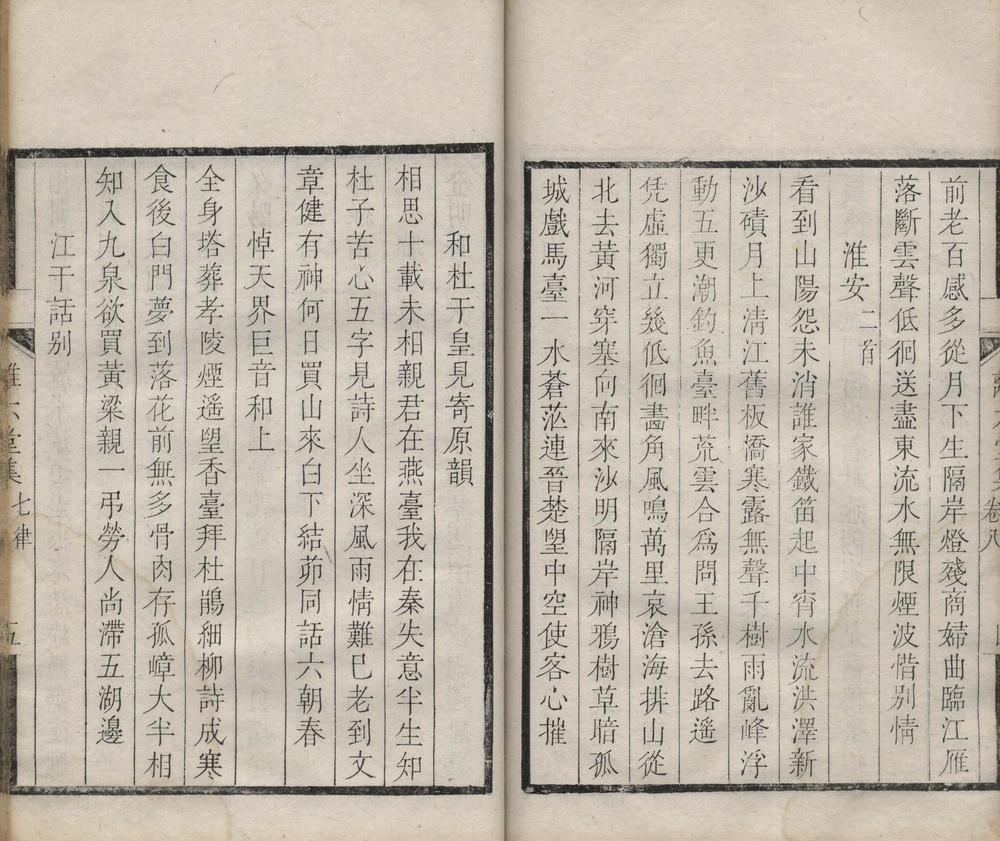 前老百感多從月下生隔岸燈殘商婦曲臨江雁
落斷雲聲低徊送盡東流水無限煙波惜别情
淮安二首
看到山陽怨未消誰家鐵笛起中宵水流洪澤新
沙磧月上清江舊板橋寒露無聲千樹雨亂峰浮
動五更潮釣魚臺畔荒雲合為問王孫去路遙
凭虛獨立幾低徊畫角風鳴萬里哀滄海排山從
北去黃河穿塞向南來沙明隔岸神鴉樹草暗孤
城戲馬臺一水蒼茫連晉楚望中空使客心摧
和杜于皇見寄原韻
相思十載未相親君在燕臺我在秦失意半生知
杜子苦心五字見詩人坐深風雨情難已老到文
章健有神何日買山來白下結茆同話六朝春
悼天界巨音和上
全身塔葬孝陵煙遙望香臺拜杜鵑細柳詩成寒
食後白門夢到落花前無多骨肉存孤嶂大半相
知入九泉欲買黃粱親一弔勞人尚滯五湖邊
江干話别
六堂集 七律 五